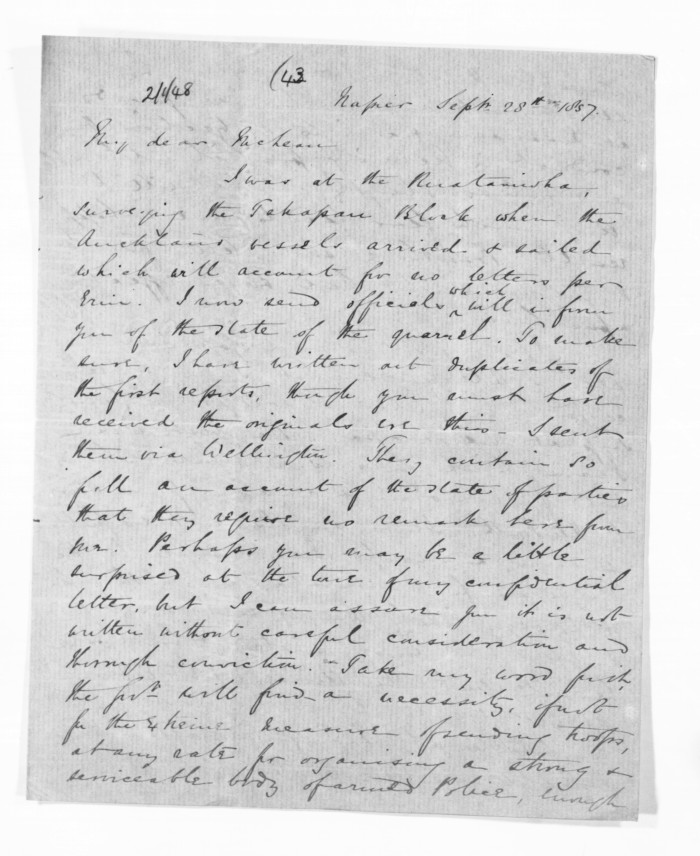 2/1/48 (43
Napier Septr. 28th 1857.
My dear McLean
I was at the Ruataniwha,
surveying the Takapau Block when the
Auckland vessels arrived & sailed
which will account for no letters per
Erin. I now send officials which will inform
you of the state of the quarrel. To make
sure, I have written out duplicates of
the first reports, though you must have
received the originals ere this. I sent
them via Wellington. They contain so
full an account of the state of parties
that they require no remark here from
me. Perhaps you may be a little
surprised at the tone of my confidential
letter, but I can assure you it is not
written without careful consideration and
thorough conviction. Take my word for it,
the Govt. will find a necessity, if not
for the extreme measure of sending troops,
at any rate for organising a strong &
serviceable body of armed Police, enough